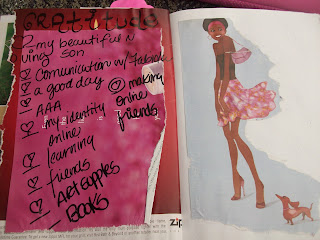 GRATITUDE
my beautiful N
ving son
Comunication w/
a good day
AAA
my identity
online
learning
friends
ART Supplies
BOOKS
making
online
friends
zip